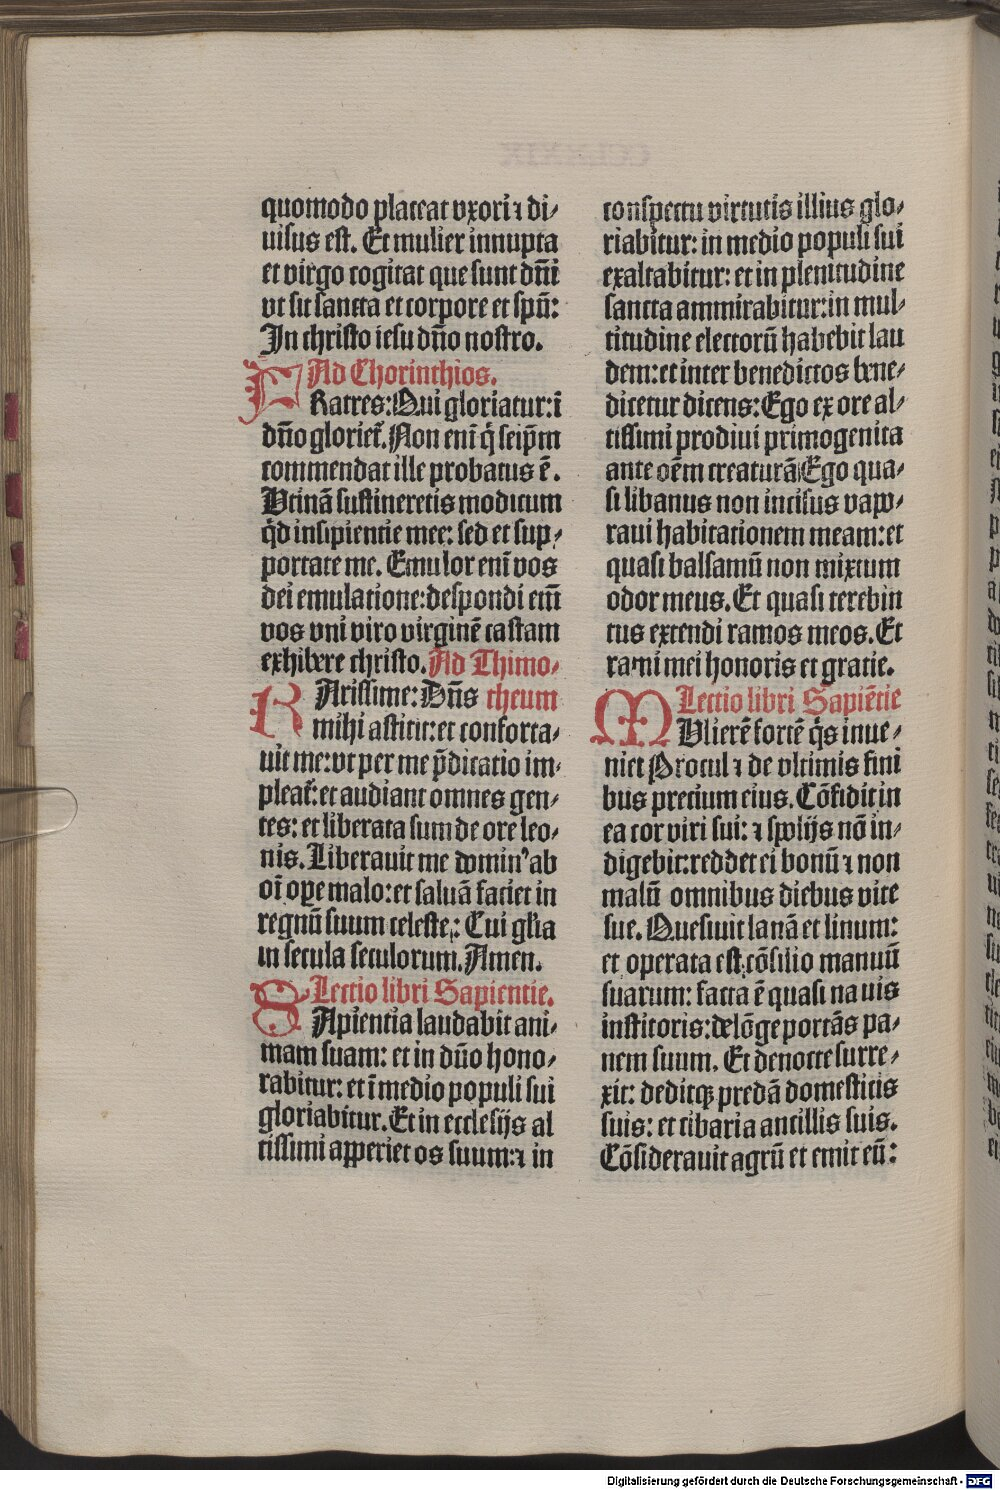 quomodo placeat vxori ⁊ di⸗
uisus est. Et mulier innupta
et virgo cogitat que sunt dñi
vt sit sancta et corpore et spũ:
In christo iesu dño nostro.
Ad Chorinthios.
FRatres: Qui gloriatur: ī
dño glorieť. Non enī q̇ seip̄m
commendat ille probatus ē.
Vtinā sustineretis modicum
q̇d insipientie mee: sed et sup⸗
portate me. Emulor enī vos
dei emulatione: despondi em̄
vos vni viro virginē castam
exhibere christo. Ad Thimo⸗
KArissime: Dñs theum
mihi astitit: et conforta⸗
uit me: vt per me p̄dicatio im⸗
pleať: et audiant omnes gen⸗
tes: et liberata sum de ore leo⸗
nis. Liberauit me domin⁹ ab
oī oꝑe malo: et saluā faciet in
regnū suum celeste: Cui gľia
in secula seculorum. Amen.
Lectio libri Sapientie.
SApientia laudabit ani⸗
mam suam: et in dño hono⸗
rabitur: et ī medio populi sui
gloriabitur. Et in ecclesijs al
tissimi apperiet os suum: ⁊ in
conspectu virtutis illius glo⸗
riabitur: in medio populi sui
exaltabitur: et in plenitudine
sancta ammirabitur: in mul⸗
titudine electorū habebit lau
dem: et inter benedictos bene⸗
dicetur dicens: Ego ex ore al⸗
tissimi prodiui primogenita
ante oēm creaturā Ego qua⸗
si libanus non incisus vapo⸗
raui habitationem meam: et
quasi balsamū non mixtum
odor meus. Et quasi terebin
tus extendi ramos meos. Et
rami mei honoris et gratie.
Lectio libri Sapiētie
MVlierē fortē q̇s inue⸗
niet Procul ⁊ de vltimis fini
bus precium eius. Cōfidit in
ea cor viri sui: ⁊ spolijs nō in⸗
digebit: reddet ei bonū ⁊ non
malū omnibus diebus vite
sue. Quesiuit lanā et linum:
et operata est cōsilio manuū
suarum: facta ē quasi nauis
institoris: de lōge portās pa⸗
nem suum. Et de nocte surre⸗
xit: deditqꝫ predā domesticis
suis: et cibaria ancillis suis.
Cōsiderauit agrū et emit eū:
Digitalisierung gefördert durch die Deutsche Forschungsgemeinschaft - DFG